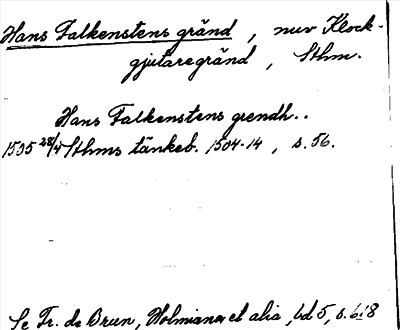 Hans Falkenstens gränd, nuv Klock-
gjutaregränd, Sthm.
Hans Falkenstens grendh..
1595 28/4 Sthms tänkeb. 1504-14, s. 56.
Se Fr. de Brun, Holmiana et alia, bd 5, s. 618